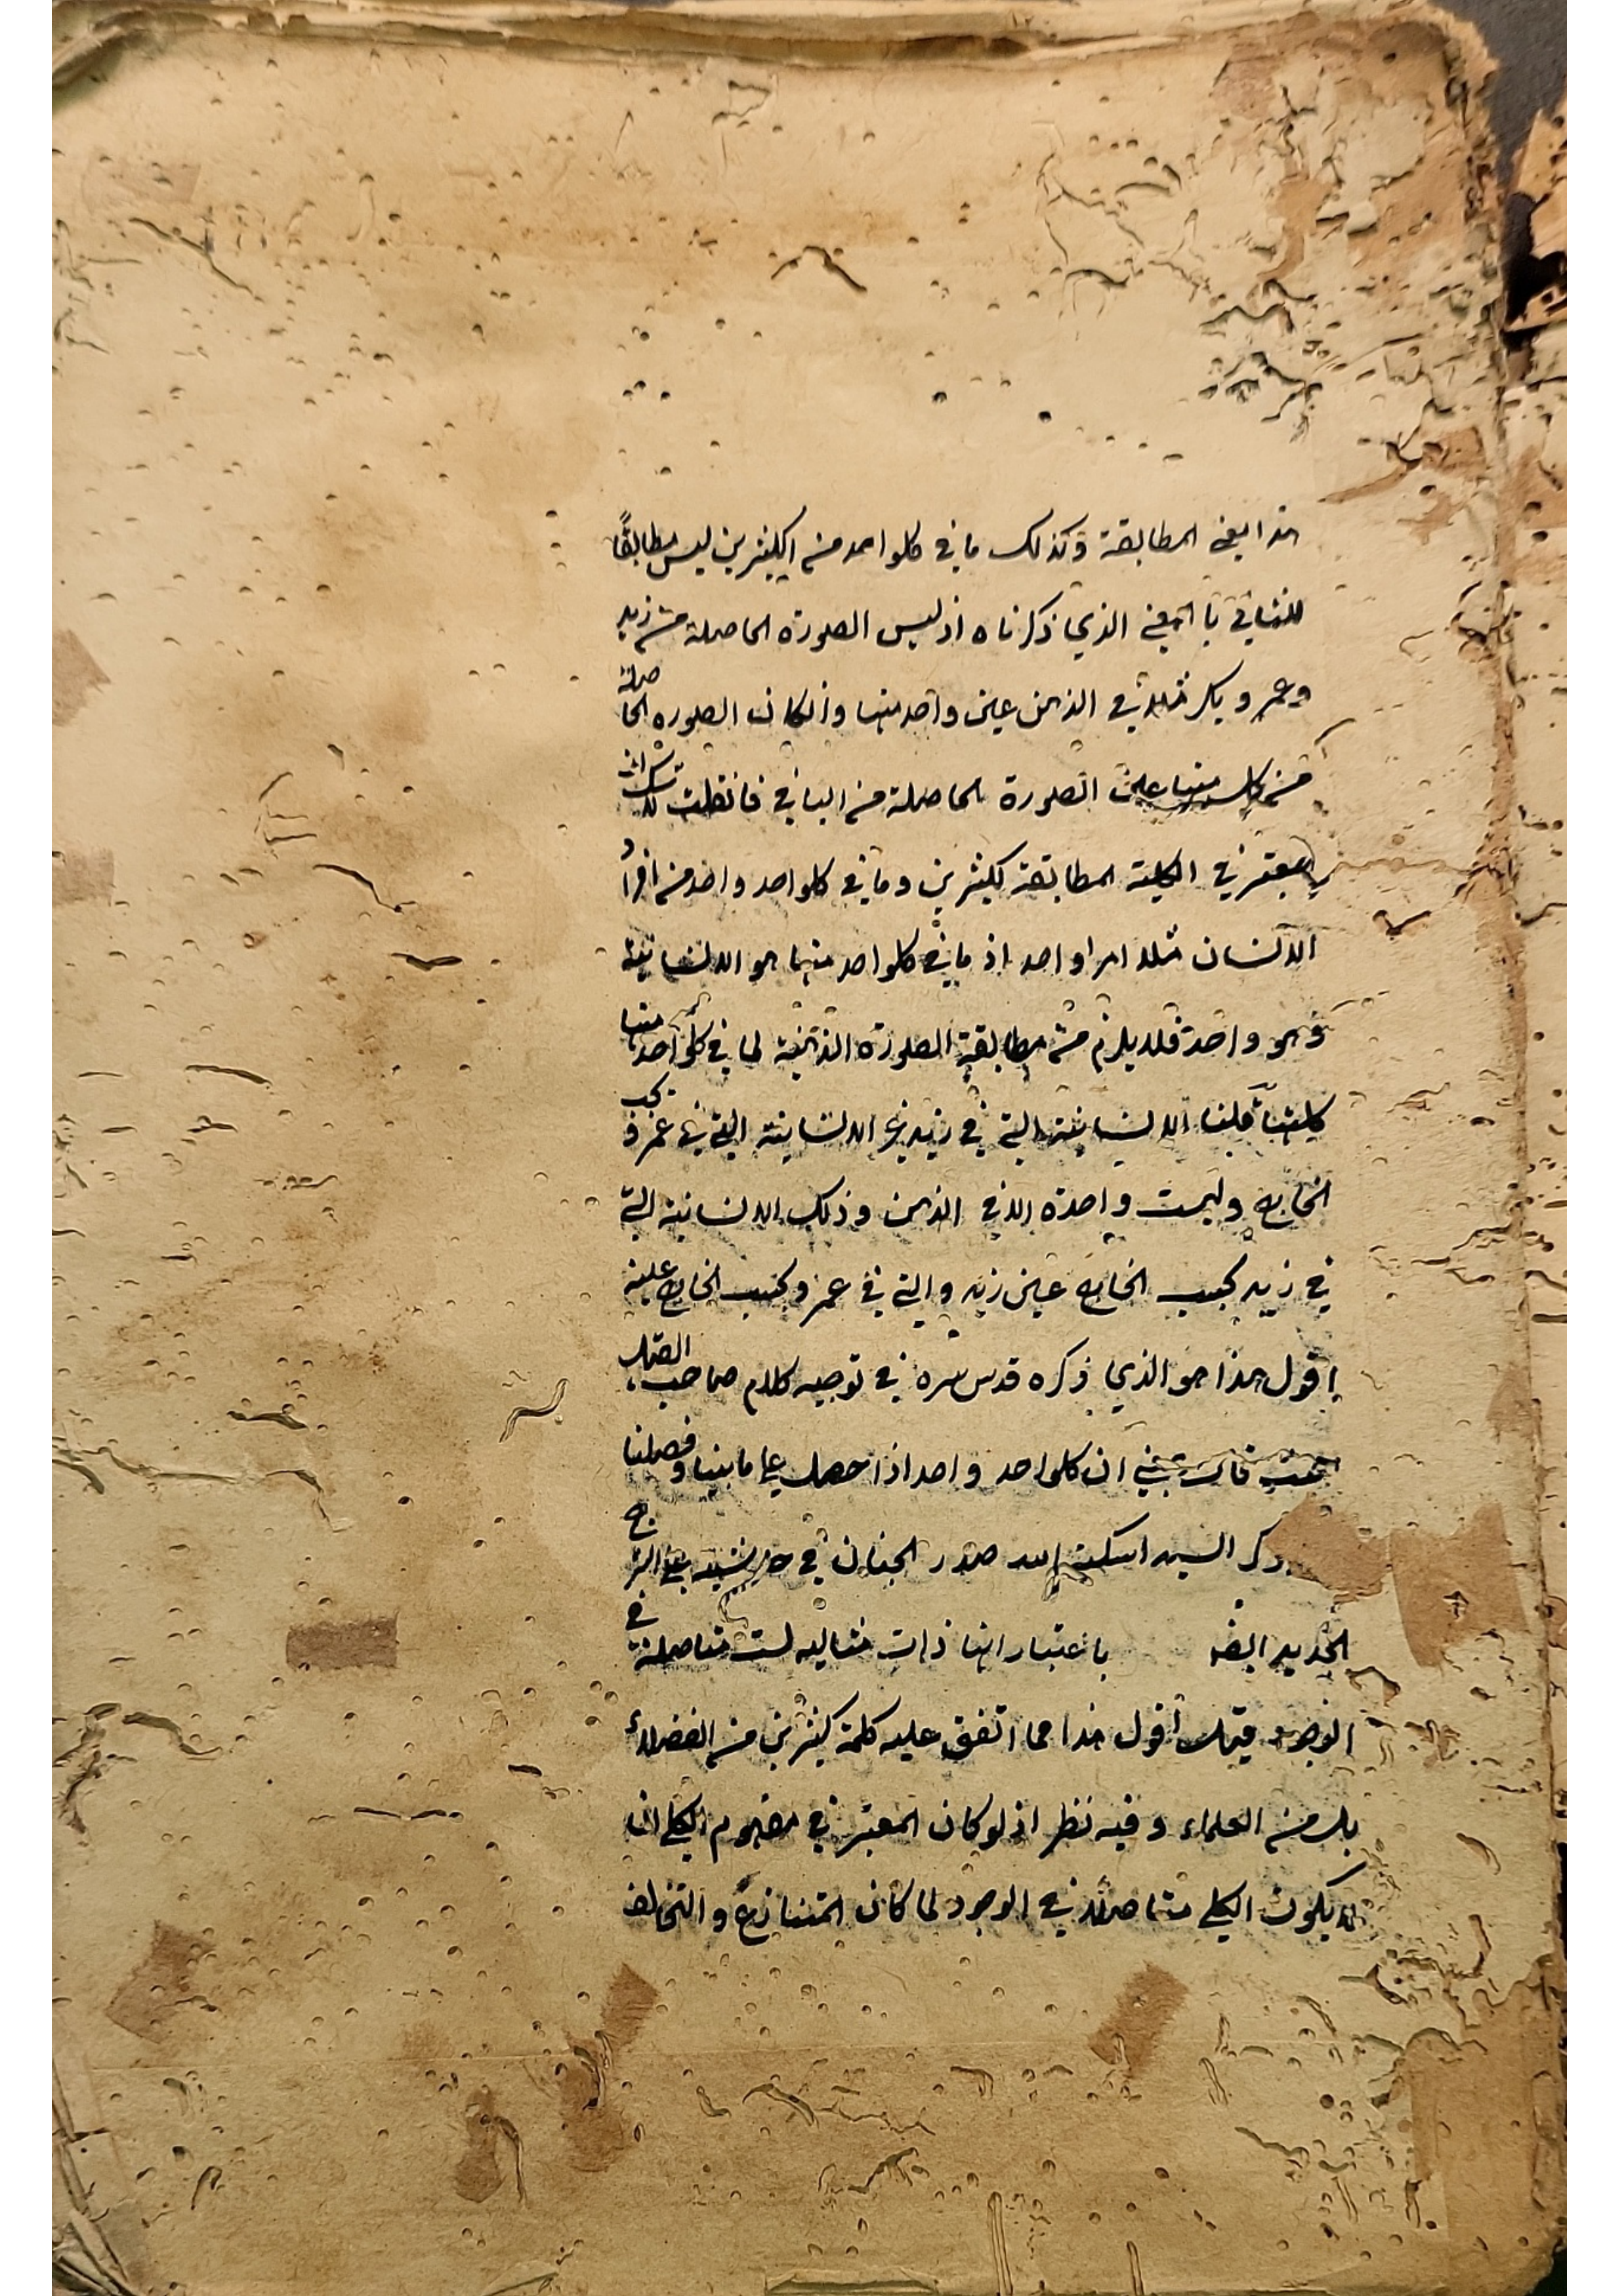 هذا يعني المطابقة وكذلك ما في كلواحد من الكثيرين ليس مطابقًا
للباقي بالمعنى الذي ذكرناه اذ ليس الصورة الحاصلة من زيد
وعمرو وبكر مثلا في الذهن عين واحد منها وان كان الصورة الحاصلة
من كل منها عين الصورة الحاصلة من الباقي فان قلت
المعتبر في الكلية المطابقة لكثيرين وما في كلواحد واحد من افراد
الانسان مثلا امرا واحد اذ ما في كلواحد منها هو الانسانية
وهو واحدة فلا يلزم من مطابقة الصورة الذهنية لما في كلواحد منها
كليتها قلنا الانسانية التي في زيد غير الانسانية التي في عمرو بحسب
الخارج وليست واحدة الا في الذهن وذلك الانسانية التي
في زيد بحسب الخارج عين زيد والتي في عمرو بحسب الخارج عينه
اقول هذا هو الذي ذكره قدس سره في توجيه كلام صاحب القيل
ان كلواحد واحد اذا حصل على ما بينا وفصلنا
السيد اسكنه الله صدور الجنان في حاشيته على الشرح
الجديد ايضا باعتبار انها ذات مثالية ليست متاصلة في
الوجود قيل اقول هذا مما اتفق عليه كلمة كثيرين من الفضلاء
بل من العلماء وفيه نظر اذ لو كان المعتبر في مفهوم الكلي ان
لا يكون الكلي متاصلا في الوجود لما كان التنازع والتخالف